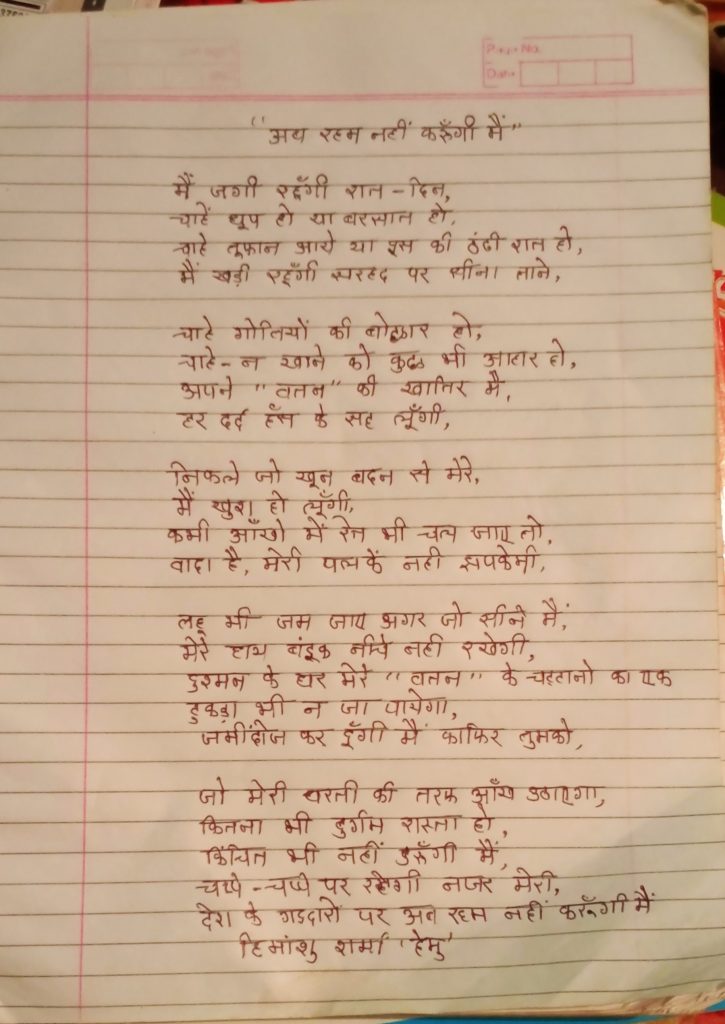 Page No.
Date
"अब रहम नहीं करूँगी मैं"
मैं जगी रहूँगी रात-दिन,
चाहें धूप हो या बरसात हो,
चाहे तूफान आये या पूस की ठंढी रात हो,
मैं खड़ी रहूँगी सरहद पर सीना ताने,
चाहे गोलियों की बोछार हो,
चाहे-न खाने को कुछ भी आहार हो,
अपने "वतन" की खातिर मैं,
हर दर्द हँस के सह लूँगी,
निकले जो खून बदन से मेरे,
मैं खुश हो लूँगी,
कभी आँखो में रेत भी चल जाए तो,
वादा है, मेरी पलकें नही झपकेगी,
लहू भी जम जाए अगर जो सीने मैं,
मेरे हाथ बंदूक नीचे नही रखेगी,
दुश्मन के घर मेरे "वतन" के चट्टानो का एक
टुकड़ा भी न जा पायेगा,
जमींदोज कर दूँगी मैं काफिर तुमको,
जो मेरी धरती की तरफ आँख उठाएगा,
कितना भी दुर्गम रास्ता हो,
किंचित भी नहीं डरूँगी मैं,
चप्पे-चप्पे पर रहेगी नजर मेरी,
देश के गद्दारों पर अब रहम नहीं करूँगी मैं
हिमांशु शर्मा 'हेमु'